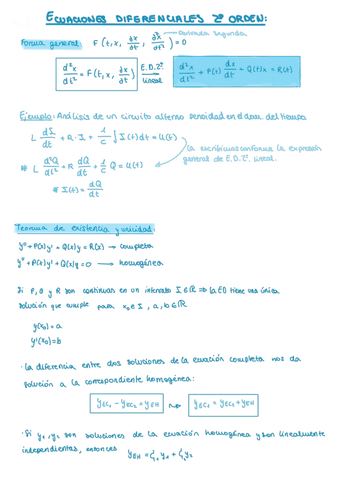 ECUACIONES DIFERENCIALES 2º ORDEN:
Forma general: F(t, x, ∂x/∂t, ∂²x/∂t²) = 0 → Derivada segunda
d²x/dt² = F(t, x, ∂x/∂t) E.D.2º lineal
d²x/dt² + P(t) dx/dt + Q(t)x = R(t)
Ejemplo: Análisis de un circuito alterno en el dominio del tiempo
L dI/dt + R·I + 1/C ∫ I(t) dt = U(t)
La escribimos conforme la expresión
general de E.D.2º lineal.
* L d²Q/dt² + R dQ/dt + 1/C Q = U(t)
* I(t) = dQ/dt
Teorema de existencia y unicidad:
y'' + P(x)y' + Q(x)y = R(x) → completa
y'' + P(x)y' + Q(x)y = 0 → homogénea
Si P, Q y R son continuas en un intervalo I ∈ ℝ ⇒ la ED tiene una única
solución que cumple para x₀ ∈ I, a, b ∈ ℝ
y(x₀) = a
y'(x₀) = b
· La diferencia entre dos soluciones de la ecuación completa nos da
solución a la correspondiente homogénea:
y_EC₁ - y_EC₂ = y_EH → y_EC₁ = y_EC₂ + y_EH
· Si y₁, y₂ son soluciones de la ecuación homogénea y son linealmente
independientes, entonces y_EH = C₁y₁ + C₂y₂